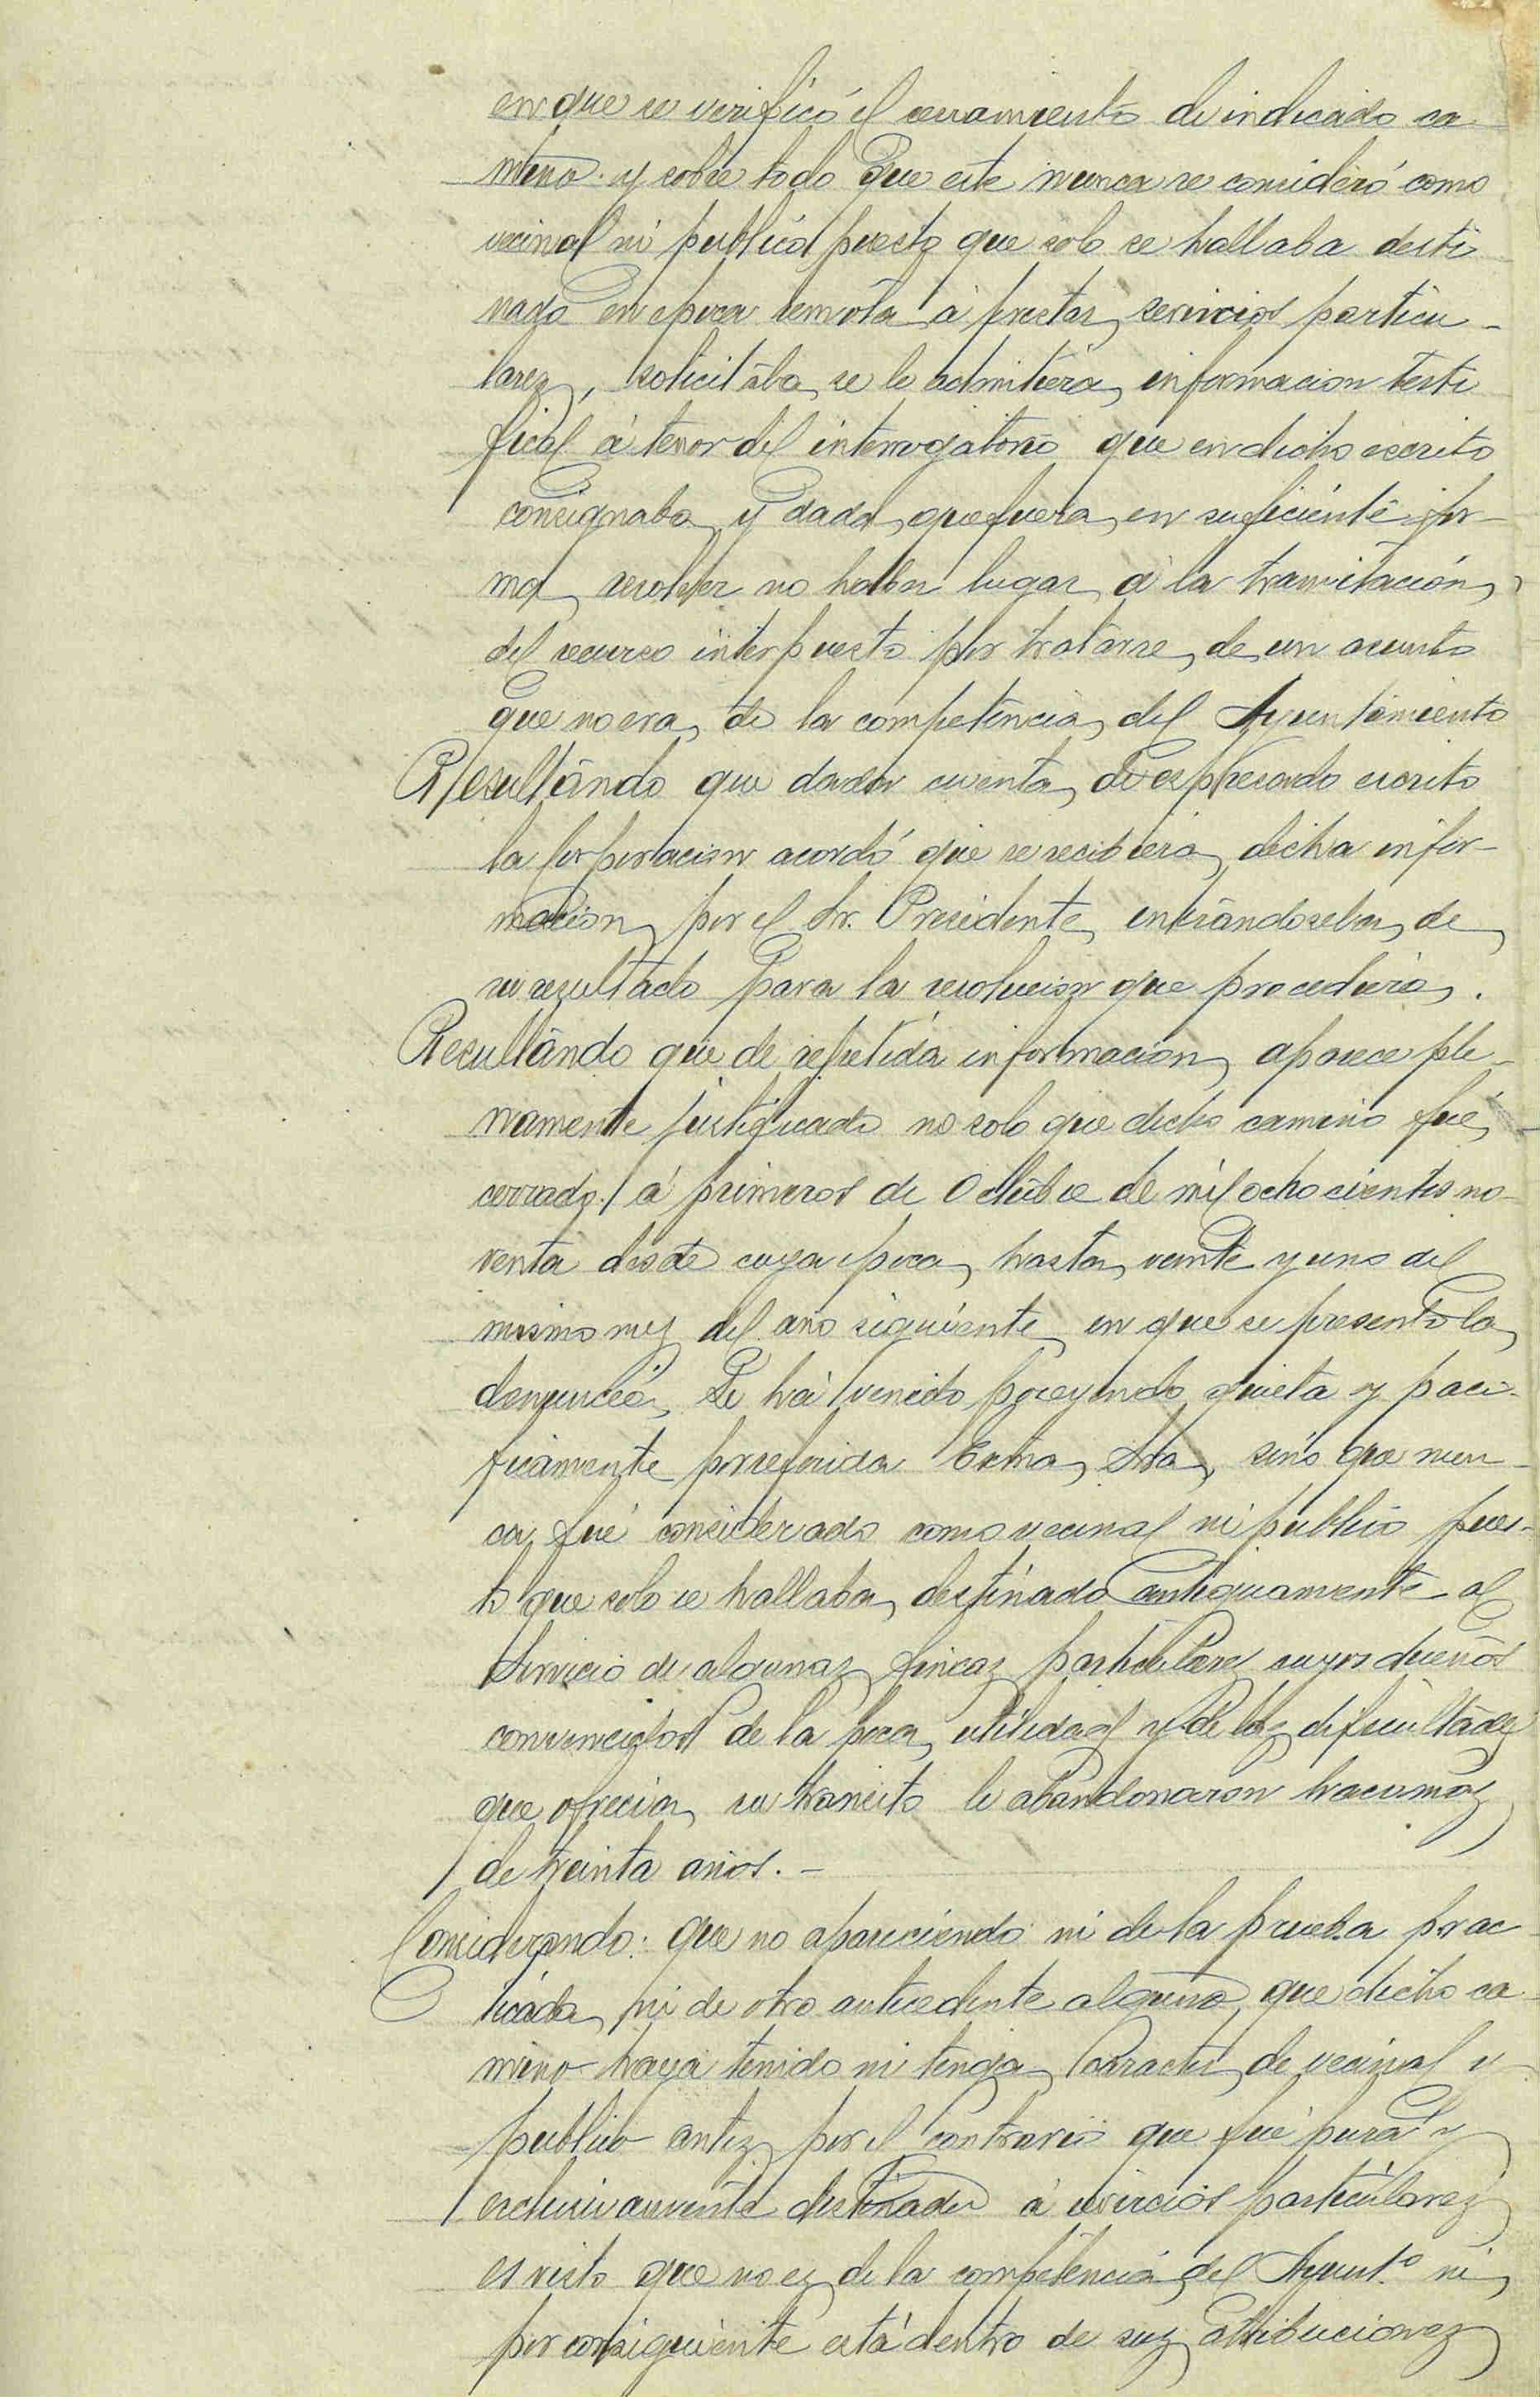 en que se verificó el cerramiento de indicado ca-
mino y sobre todo que este nunca se consideró como
vecinal ni publico puesto que solo se hallaba desti
nado en epoca remota á prestar servicios particu-
lares, solicitaba se le admitiera informacion testi
fical á tenor del interrogatorio que en dicho escrito
consignaba y dada que fuera en suficiente for-
ma, resolver no haber lugar á la tramitación,
del recurso interpuesto por tratarse de un asunto
que no era de la competencia del Ayuntamiento
Resultando que dada cuenta de espresado escrito
la Corporacion acordó que se recibiera dicha infor-
macion por el Sr. Presidente, enterándosela de
su resultado para la resolucion que procediera.
Resultando que de repetida informacion aparece ple-
namente justificado no solo que dicho camino fué
cerrado á primeros de Octubre de mil ochocientos no-
venta desde cuya epoca hasta veinte y uno del
mismo mes del año siguiente en que se presentó la
denuncia, se há venido poseyendo quieta y paci-
ficamente por referida Exma Sra, sinó que nun-
ca fué considerado como vecinal ni publico pues-
to que solo se hallaba destinado antiguamente al
Servicio de algunas fincas particulares cuyos dueños
convencidos de la poca utilidad y de las dificultades
que ofrecia su transito le abandonaron hacia mas
de treinta años. -
Considerando: que no apareciendo ni de la prueba prac
ticada ni de otro antecedente alguno, que dicho ca-
mino haya tenido ni tenga caracter de vecinal y
publico antes por el contrario que fué pura y
esclusivamente destinado á servicios particulares
es visto que no es de la competencia del Ayunt.º ni
por consiguiente está dentro de sus atribuciones